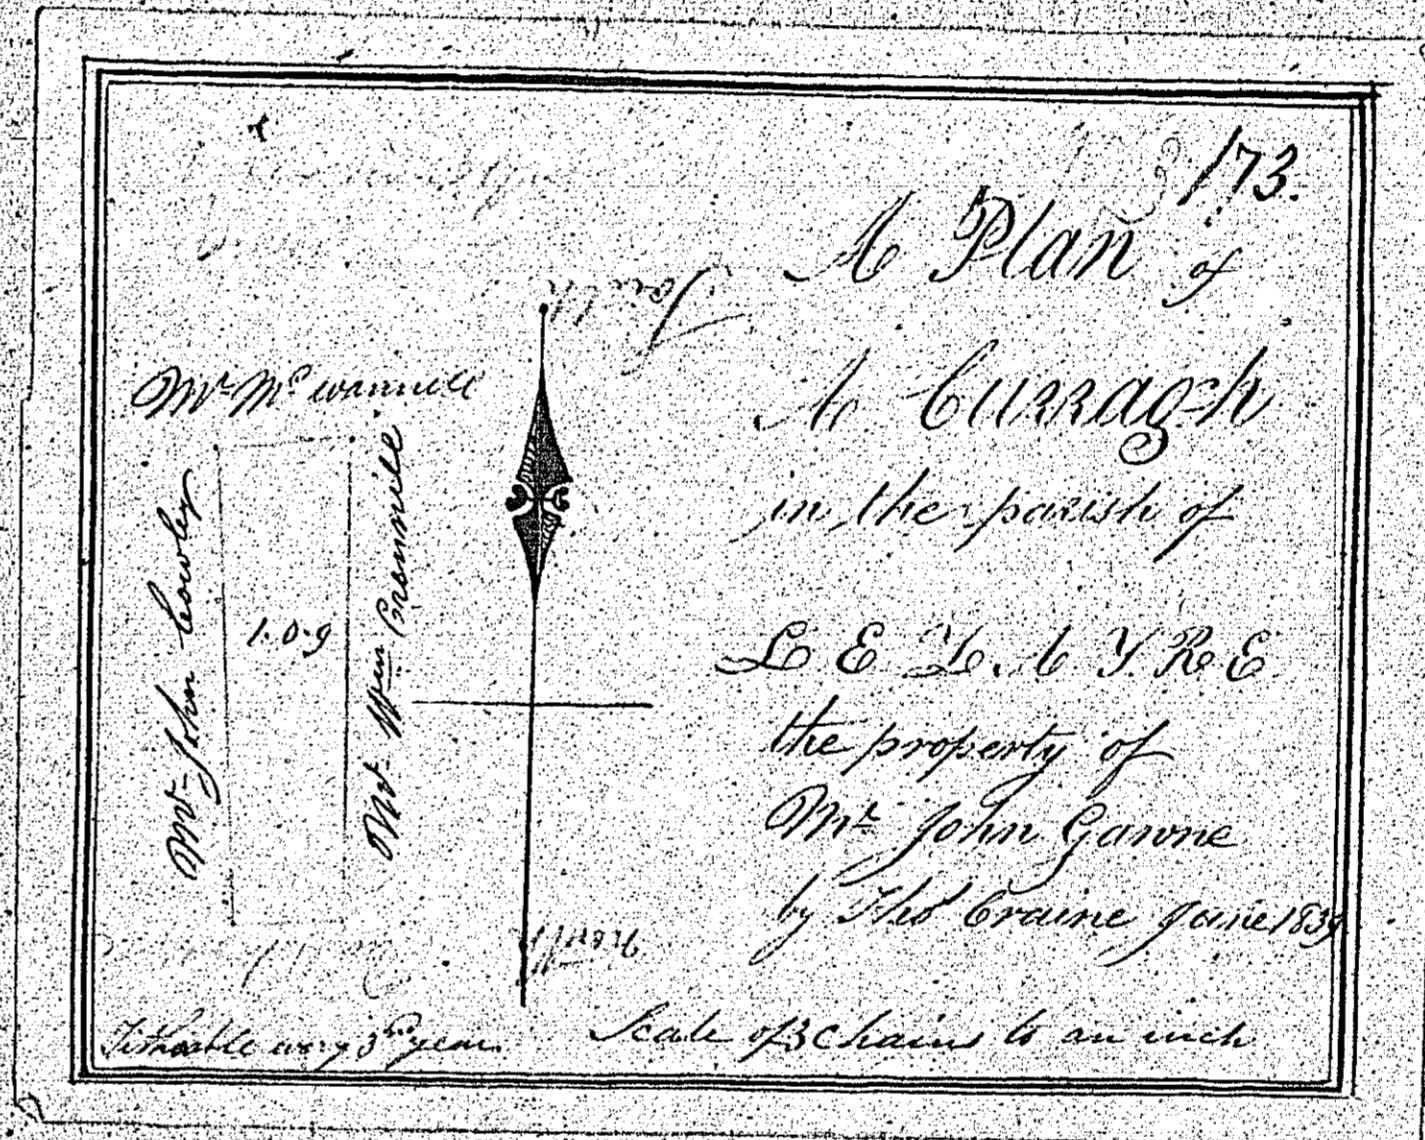 173.
A Plan of
A Curragh
in the parish of
LEZAYRE
the property of
Mr John Gawne
by Thos Craine June 1839
South
Mr
Mr John Cowley
1.0.9
Mr Wm Crannell
North
Titheable every 3rd year
Scale of 3 Chains to an inch